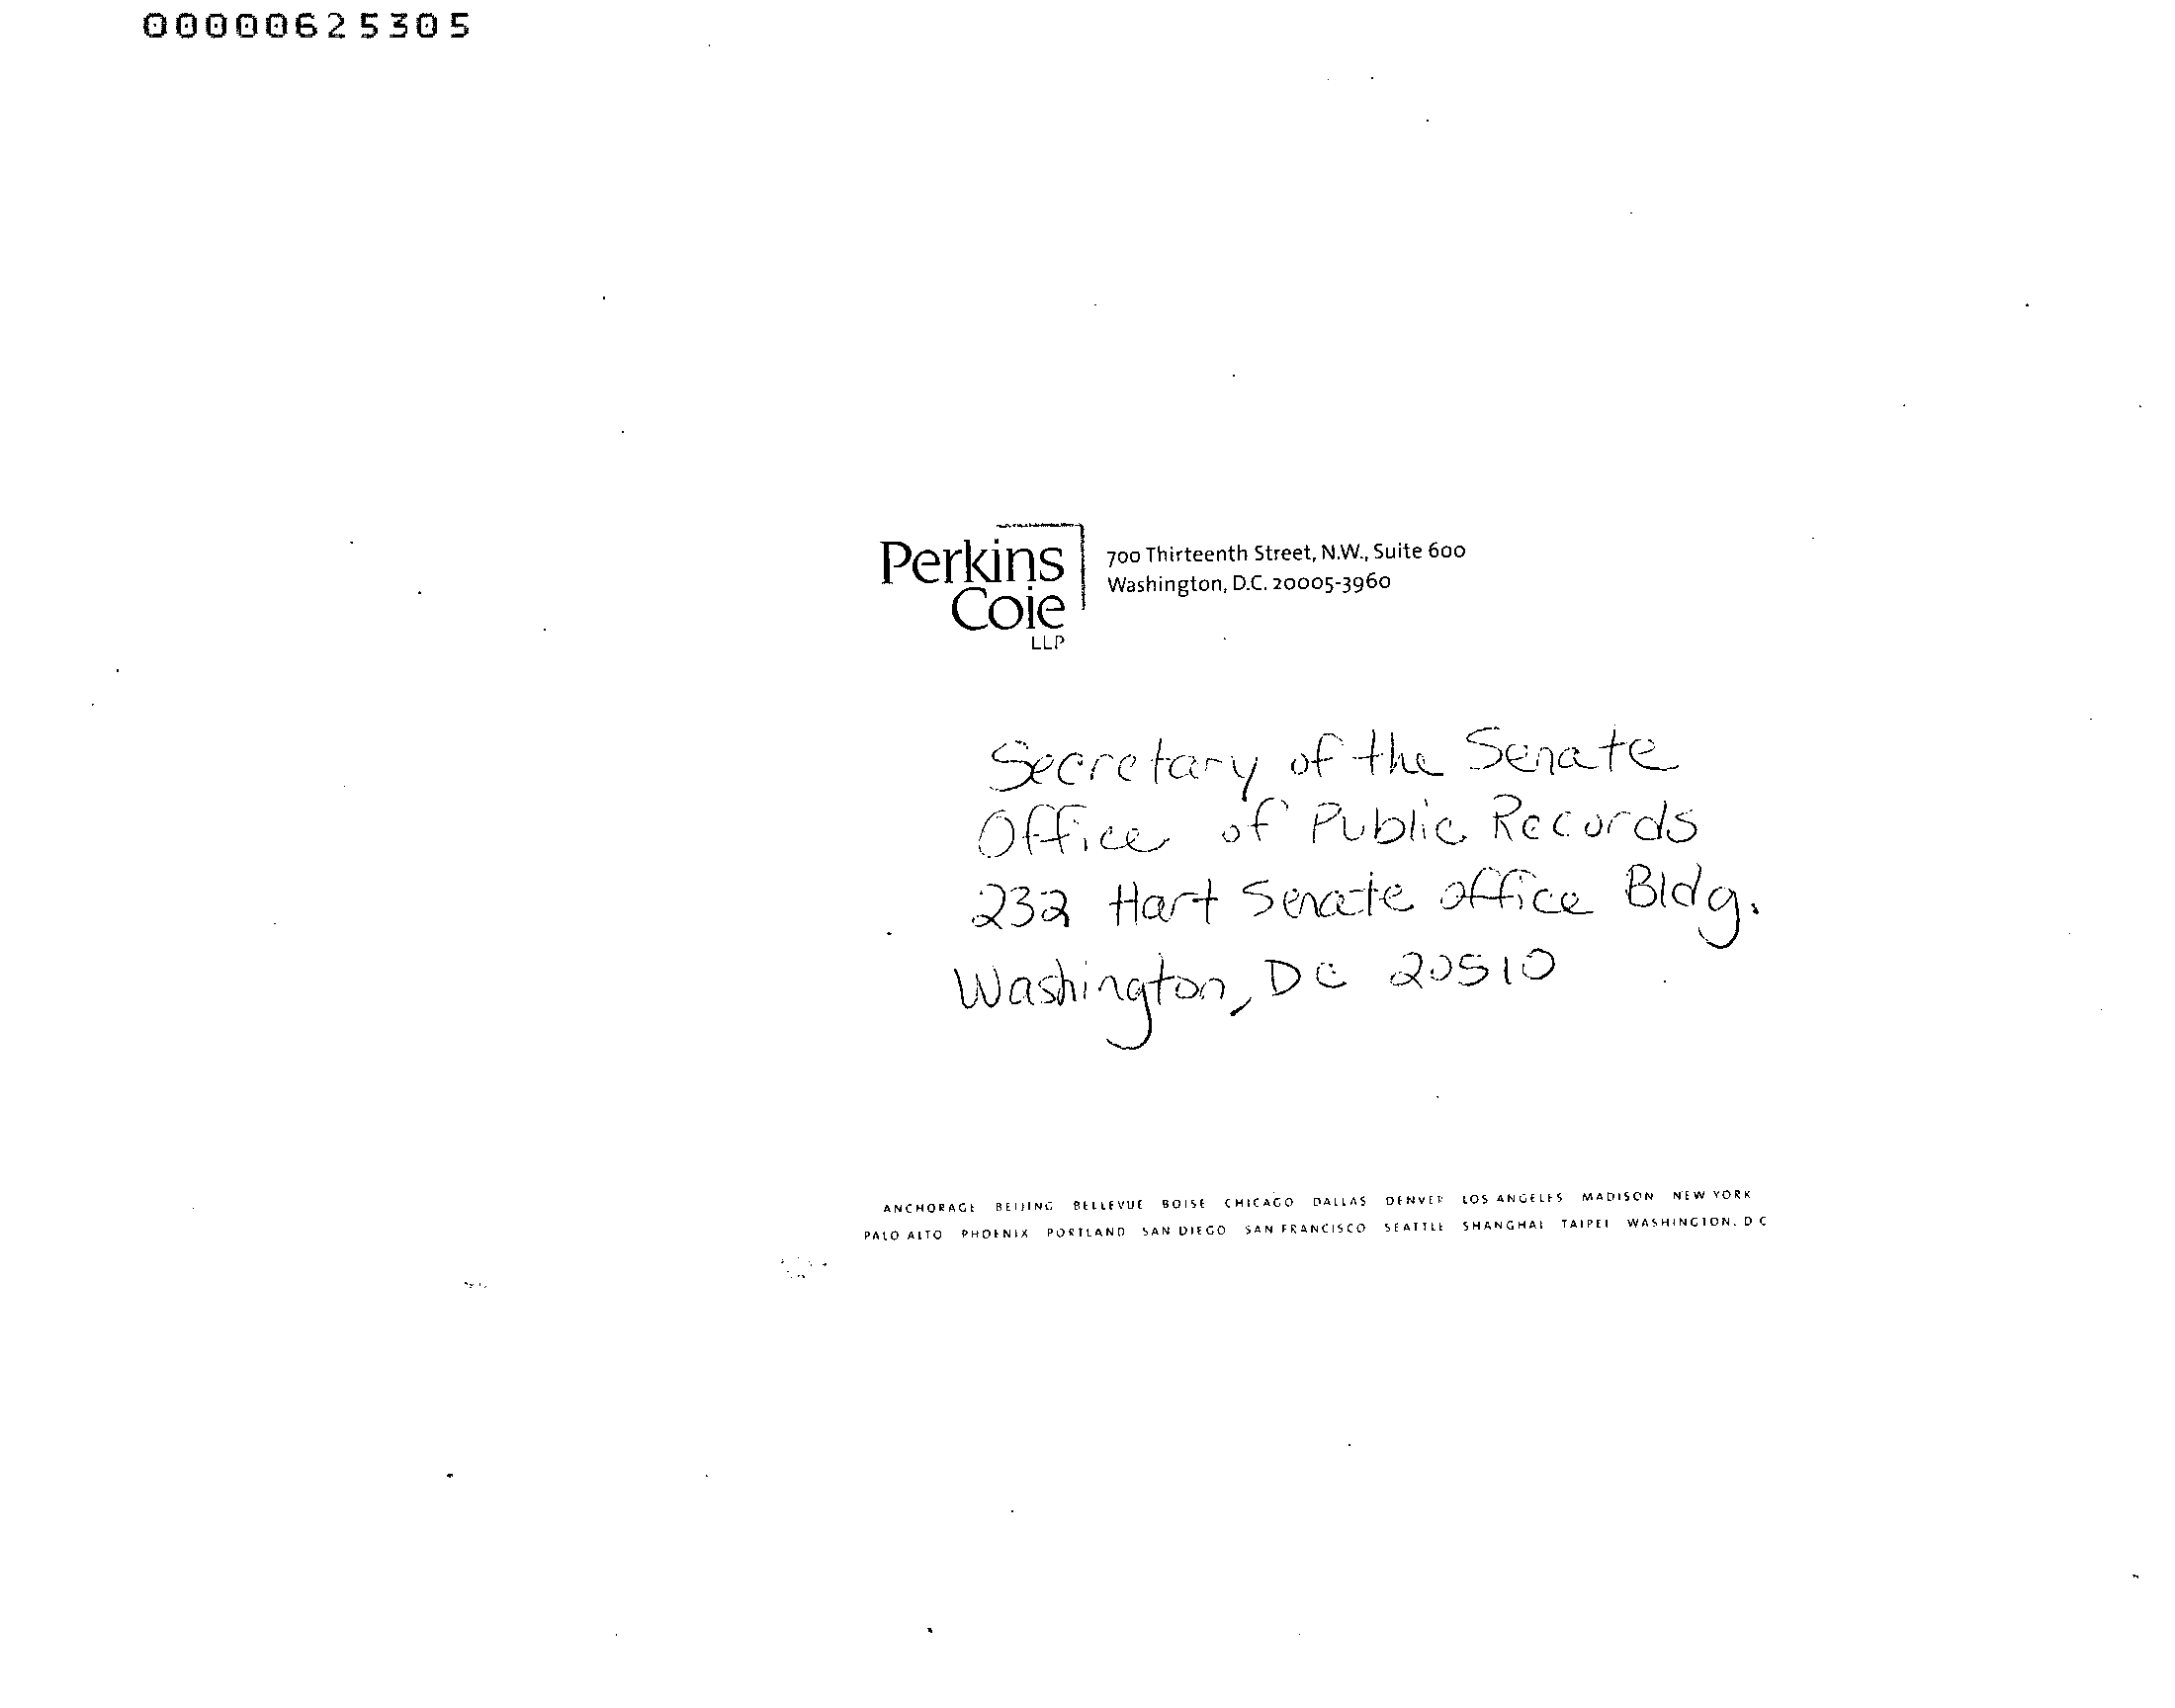 00000625305
Perkins
Coie
LLP
700 Thirteenth Street, N.W., Suite 600
Washington, D.C. 20005-3960
Secretary of the Senate
Office of Public Records
232 Hart Senate office Bldg.
Washington, DC 20510
ANCHORAGE BEIJING BELLEVUE BOISE CHICAGO DALLAS DENVER LOS ANGELES MADISON NEW YORK
PALO ALTO PHOENIX PORTLAND SAN DIEGO SAN FRANCISCO SEATTLE SHANGHAI TAIPEI WASHINGTON, D C